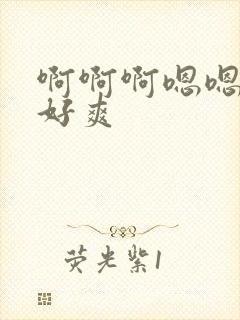 啊啊啊嗯嗯
好爽
荧光紫1